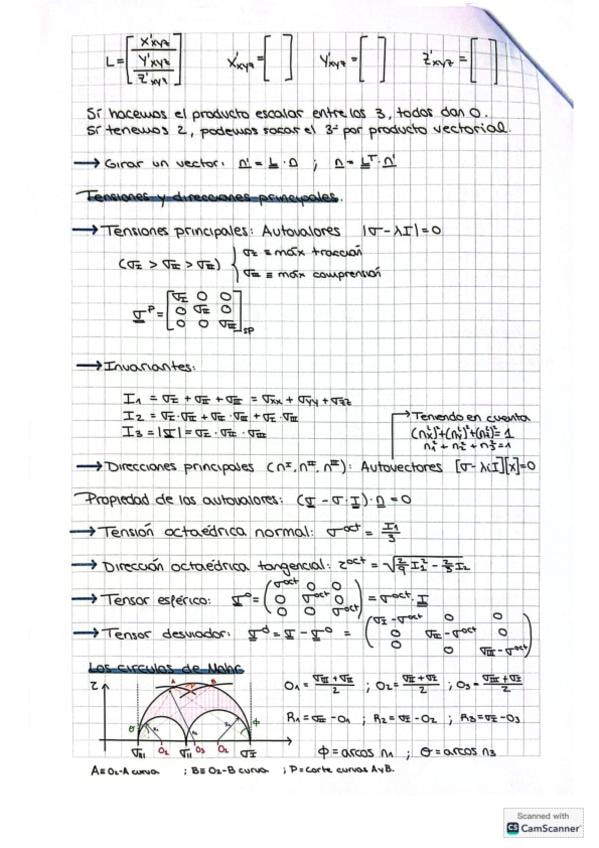 L = [X'xyz / Y'xyz / Z'xyz]   X'xyz = [ ]   Y'xyz = [ ]   Z'xyz = [ ]
Si hacemos el producto escalar entre los 3, todos dan 0.
Si tenemos 2, podemos sacar el 3º por producto vectorial.
→ Girar un vector: n' = L · n ; n = Lᵀ · n'
Tensiones y direcciones principales.
→ Tensiones principales: Autovalores |σ - λI| = 0
(σI > σII > σIII) { σI ≡ máx tracción
σIII ≡ máx comprensión
σᴾ = [σI 0 0
0 σII 0
0 0 σIII]SP
→ Invariantes:
I1 = σI + σII + σIII = σxx + σyy + σzz
I2 = σI·σII + σII·σIII + σI·σIII
I3 = |σ| = σI · σII · σIII
→ Teniendo en cuenta
(nxⁱ)² + (nyⁱ)² + (nzⁱ)² = 1
n1² + n2² + n3² = 1
→ Direcciones principales (nI, nII, nIII): Autovectores [σ - λiI][x] = 0
Propiedad de los autovalores: (σ - σ·I)·n = 0
→ Tensión octaédrica normal: σoct = I1/3
→ Dirección octaédrica tangencial: τoct = √(2/9 I1² - 2/3 I2)
→ Tensor esférico: σ⁰ = (σoct 0 0
0 σoct 0
0 0 σoct) = σoct · I
→ Tensor desviador: σᵈ = σ - σ⁰ = (σI - σoct 0 0
0 σII - σoct 0
0 0 σIII - σoct)
Los circulos de Mohr
τ A P B
θ φ
σIII O2 σII O3 O2 σI
O1 = (σIII + σII)/2 ; O2 = (σI + σII)/2 ; O3 = (σIII + σI)/2
R1 = σII - O1 ; R2 = σI - O2 ; R3 = σI - O3
φ = arcos n1 ; θ = arcos n3
A ≡ O2-A curva ; B ≡ O2-B curva ; P = corte curvas A y B.
Scanned with
CS CamScanner